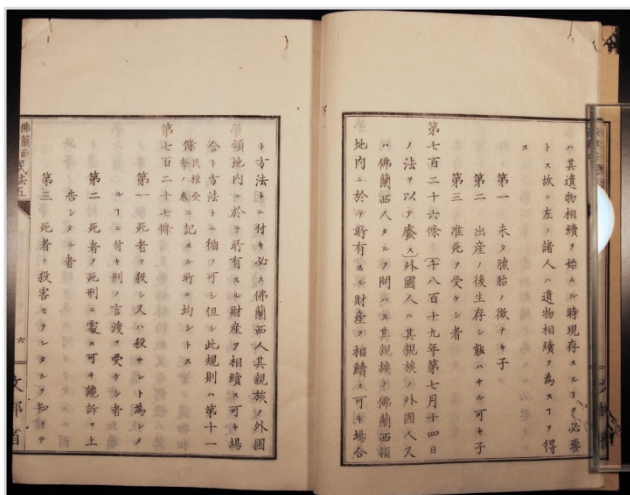 ハ其遺物相續ヲ始ムル時現存スルヿヲ必要
トス故ニ左ノ諸人ハ遺物相續ヲ為スヿヲ得
ス
第一 未タ臆胎ノ徴ナキ子
第二 出産後生存シ能ハサル可キ子
第三 准死ヲ受ケシ者
第七百二十六條 〔千八百十九年第七月十四日
ノ法ヲ以テ廢ス〕外國人ハ其親族ノ外國人又
ハ佛蘭西人タルヲ問ハス其親族ノ佛蘭西領
地内ニ於テ所有スル財産ヲ相續ス可キ場合
ト方法トニ付キ必ス佛蘭西人其親族ノ外國
領地内ニ於テ所有スル財産ヲ相續ス可キ場
合ト方法トニ循フ可シ但シ此規則ハ第十一
條民權受擧ノ卷ニ記スル所ニ均シトス
第七百二十七條
第一 死者ヲ殺シ又ハ殺サント為シタ
ルヿニ付キ刑ノ言渡ヲ受ケシ者
第二 死者ヲ死刑ニ處ス可キ誣訴ヲ上
告シタル者
第三 死者ノ殺害セラレタルヲ知リテ
佛蘭西民法五
六
文部省